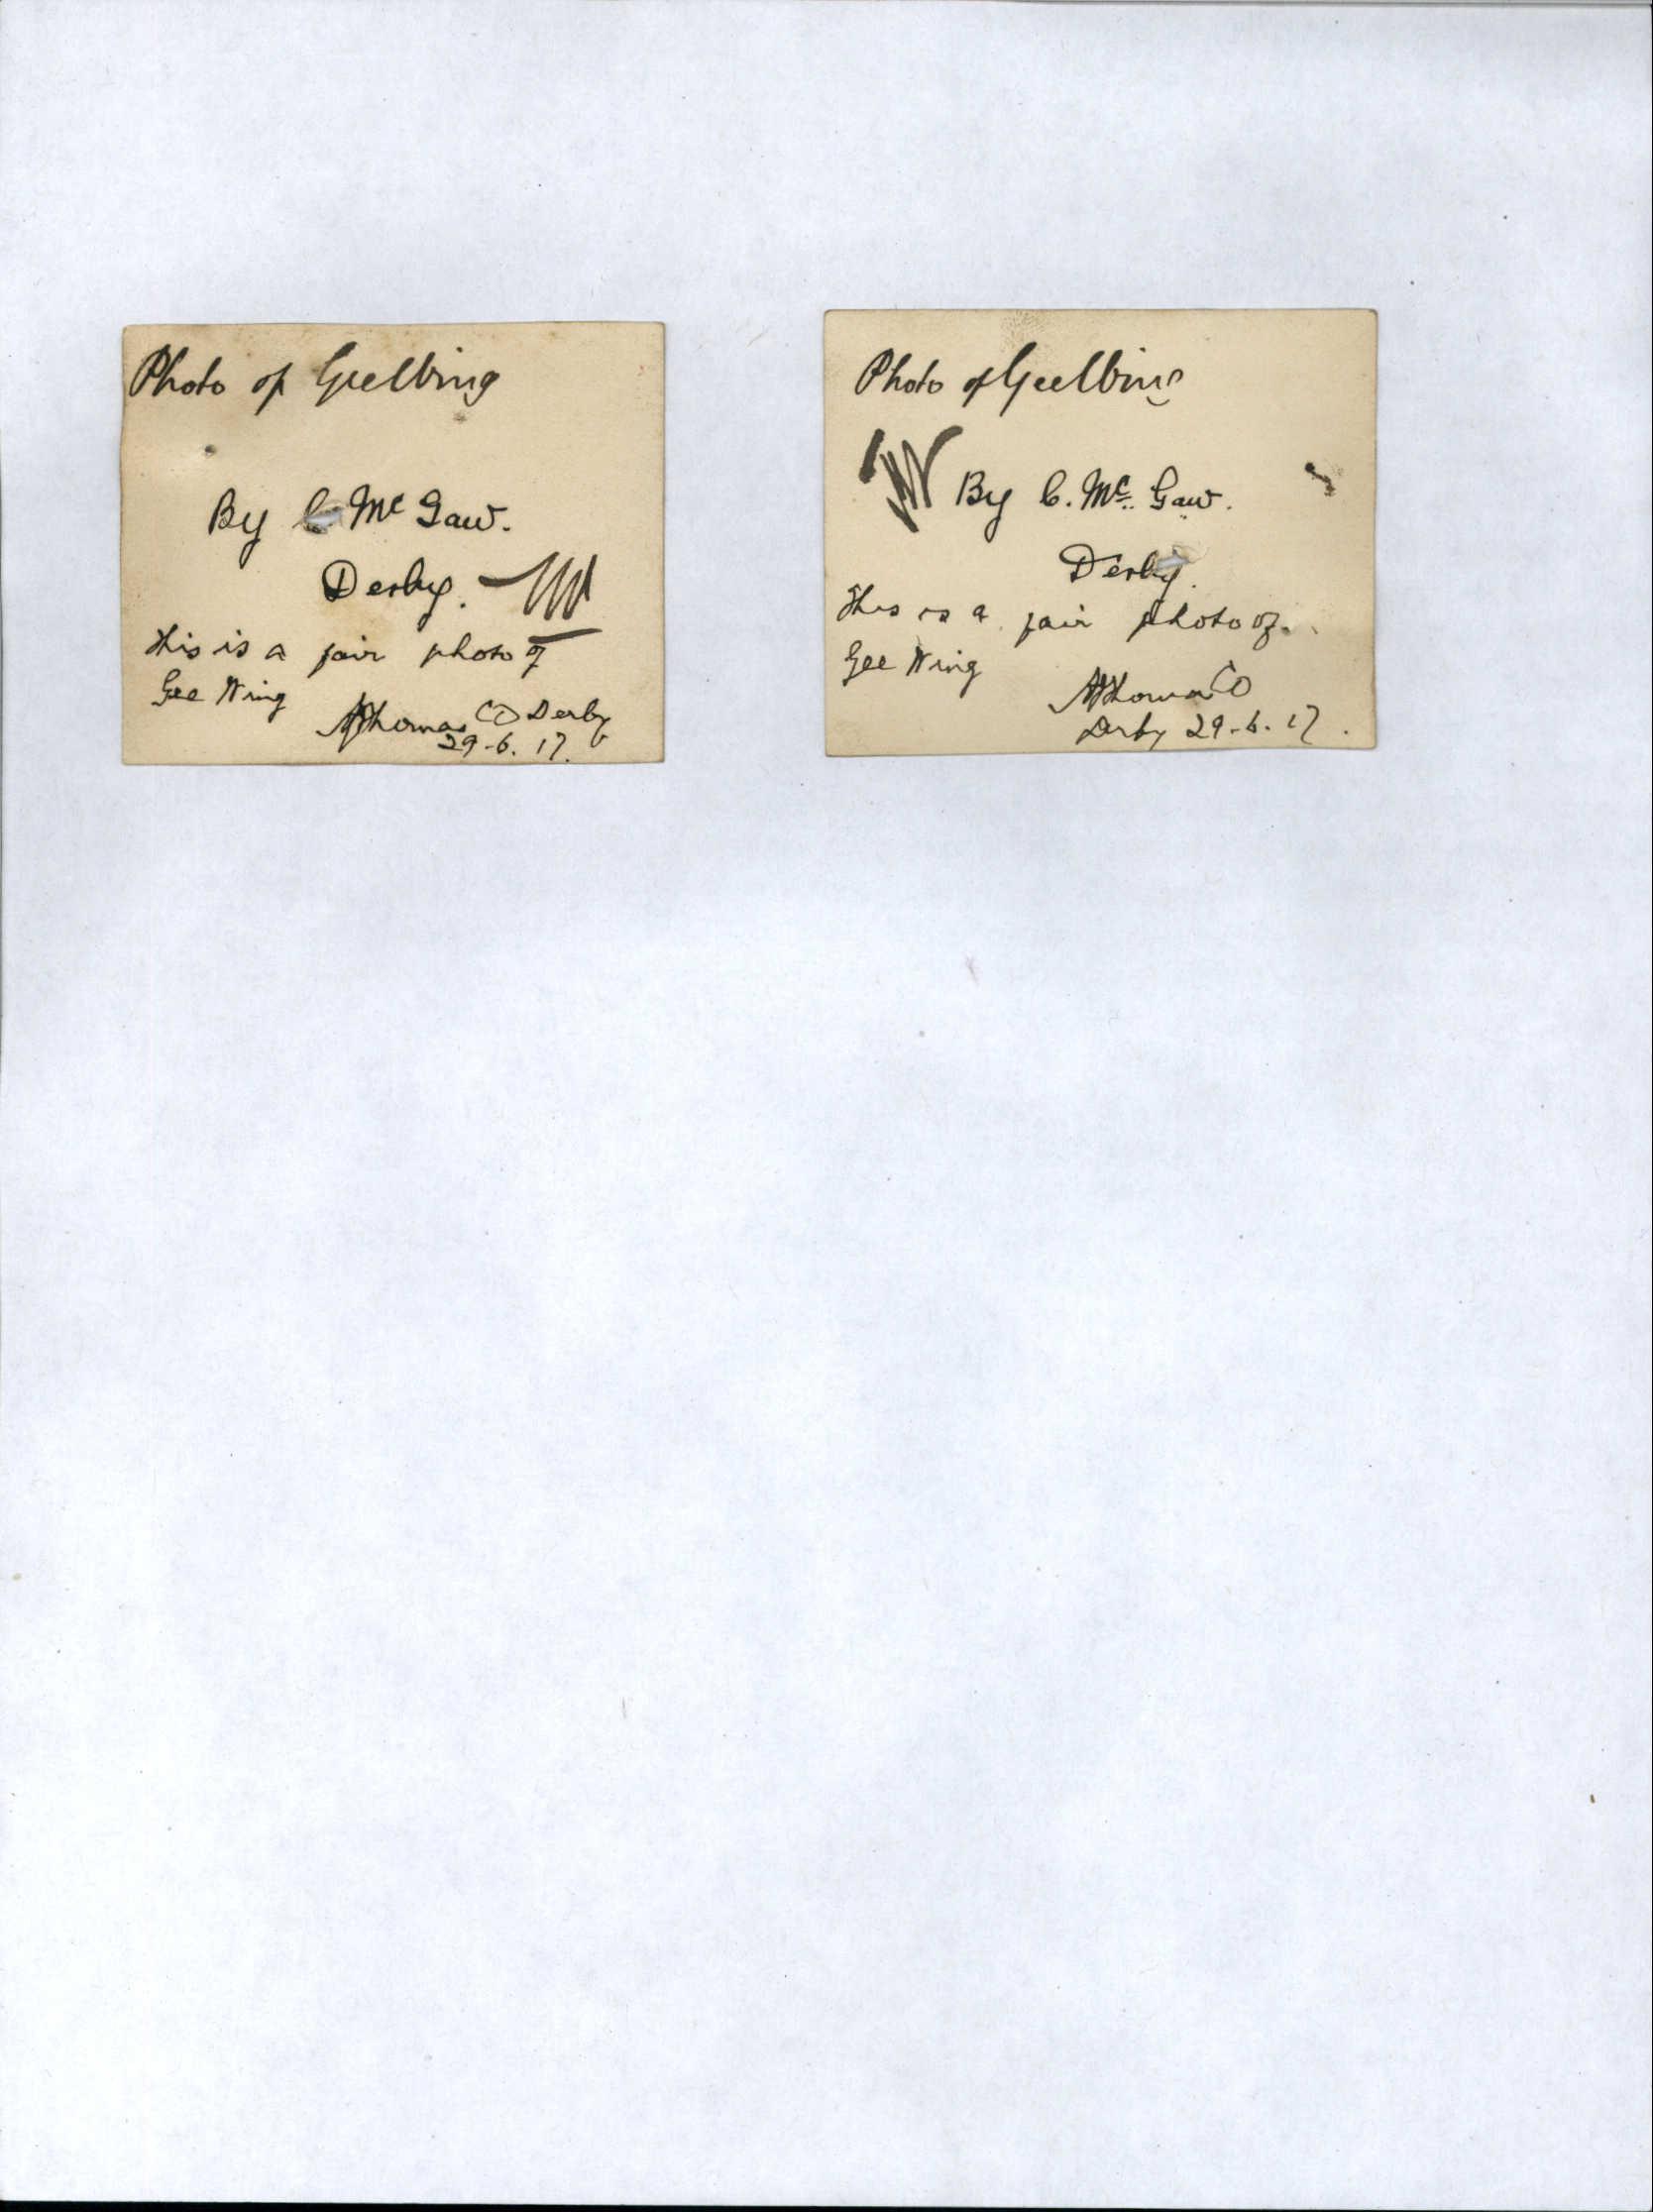 Photo of Gee Wing
By C. Mc Gaw.
Derby.
This is a fair photo of
Gee Wing
Thomas CO Derby
29-6.17.
Photo of Gee Wing
By C. Mc. Gaw.
Derby.
This is a fair photo of
Gee Wing
Thomas CO
Derby 29-6.17.